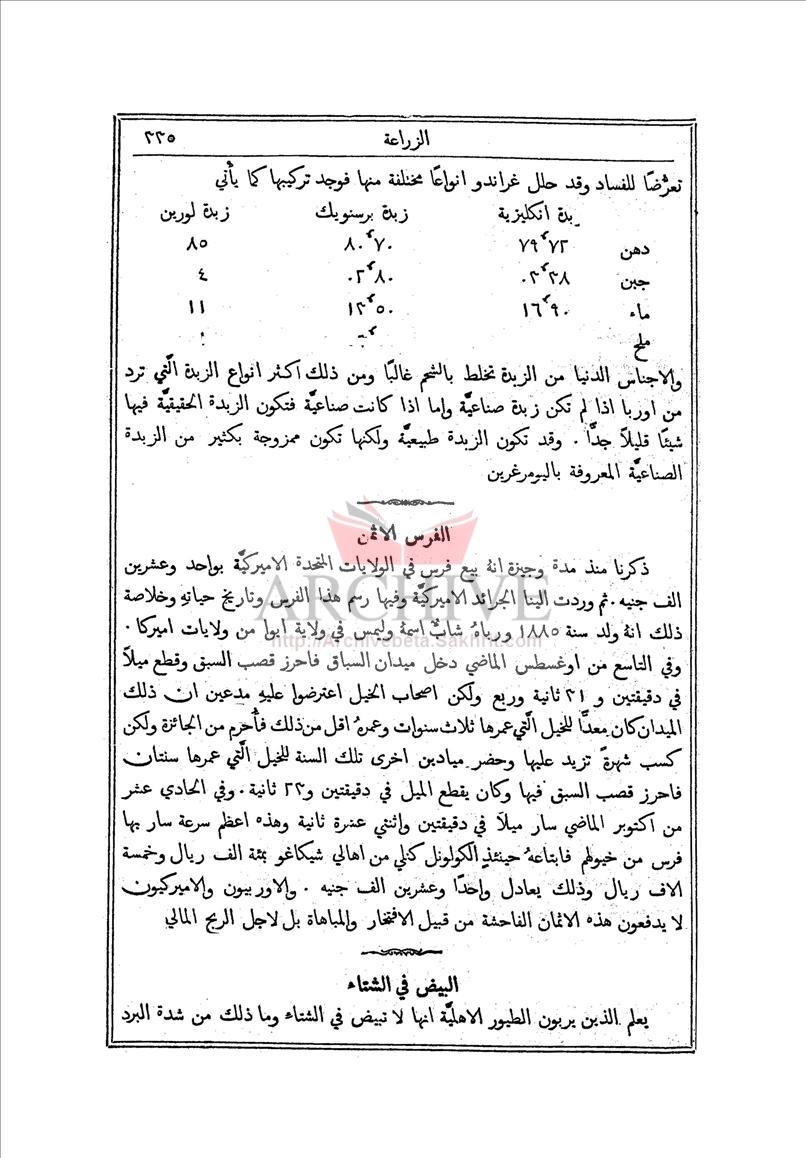 الزراعة ٢٢٥
تعرُّضًا للفساد وقد حلل غراندو انواعًا مختلفة منها فوجد تركيبها كما يأتي
زبدة انكليزية زبدة برسنويك زبدة لورين
دهن ٧٩٬٧٢ ٨٠٬٧٠ ٨٥
جبن ٠٣٬٣٨ ٠٢٬٨٠ ٤
ماء ١٦٬٩٠ ١٣٬٥٠ ١١
ملح
والاجناس الدنيا من الزبدة تخلط بالشحم غالبًا ومن ذلك اكثر انواع الزبدة الَّتي ترد
من اوربا اذا لم تكن زبدة صناعيَّة واما اذا كانت صناعيَّة فتكون الزبدة الحقيقيَّة فيها
شيئًا قليلاً جدًّا . وقد تكون الزبدة طبيعيَّة ولكنها تكون ممزوجة بكثير من الزبدة
الصناعيَّة المعروفة باليومرغرين
الفرس الاثمن
ذكرنا منذ مدة وجيزة انهُ بيع فرس في الولايات المتحدة الاميركيَّة بواحد وعشرين
الف جنيه . ثم وردت الينا الجرائد الاميركيَّة وفيها رسم هذا الفرس وتاريخ حياته وخلاصة
ذلك انهُ ولد سنة ١٨٨٥ ورباهُ شابٌ اسمهُ وليمس في ولاية ايوا من ولايات اميركا .
وفي التاسع من اوغسطس الماضي دخل ميدان السباق فاحرز قصب السبق وقطع ميلاً
في دقيقتين و ٢١ ثانية وربع ولكن اصحاب الخيل اعترضوا عليهِ مدعين ان ذلك
الميدان كان معدًّا للخيل الَّتي عمرها ثلاث سنوات وعمرهُ اقل من ذلك فأُحرم من الجائزة ولكن
كسب شهرةً تزيد عليها وحضر ميادين اخرى تلك السنة للخيل الَّتي عمرها سنتان
فاحرز قصب السبق فيها وكان يقطع الميل في دقيقتين و٢٢ ثانية . وفي الحادي عشر
من اكتوبر الماضي سار ميلاً في دقيقتين واثنتي عشرة ثانية وهذه اعظم سرعة سار بها
فرس من خيولهم فابتاعهُ حينئذٍ الكولونل كنلي من اهالي شيكاغو بمئة الف ريال وخمسة
الاف ريال وذلك يعادل واحدًا وعشرين الف جنيه . والاوربيون والاميركيون
لا يدفعون هذه الاثمان الفاحشة من قبيل الافتخار والمباهاة بل لاجل الربح المالي
البيض في الشتاء
يعلم الذين يربون الطيور الاهليَّة انها لا تبيض في الشتاء وما ذلك من شدة البرد
ARCHIVE
http://Archivebeta.Sakhrit.com